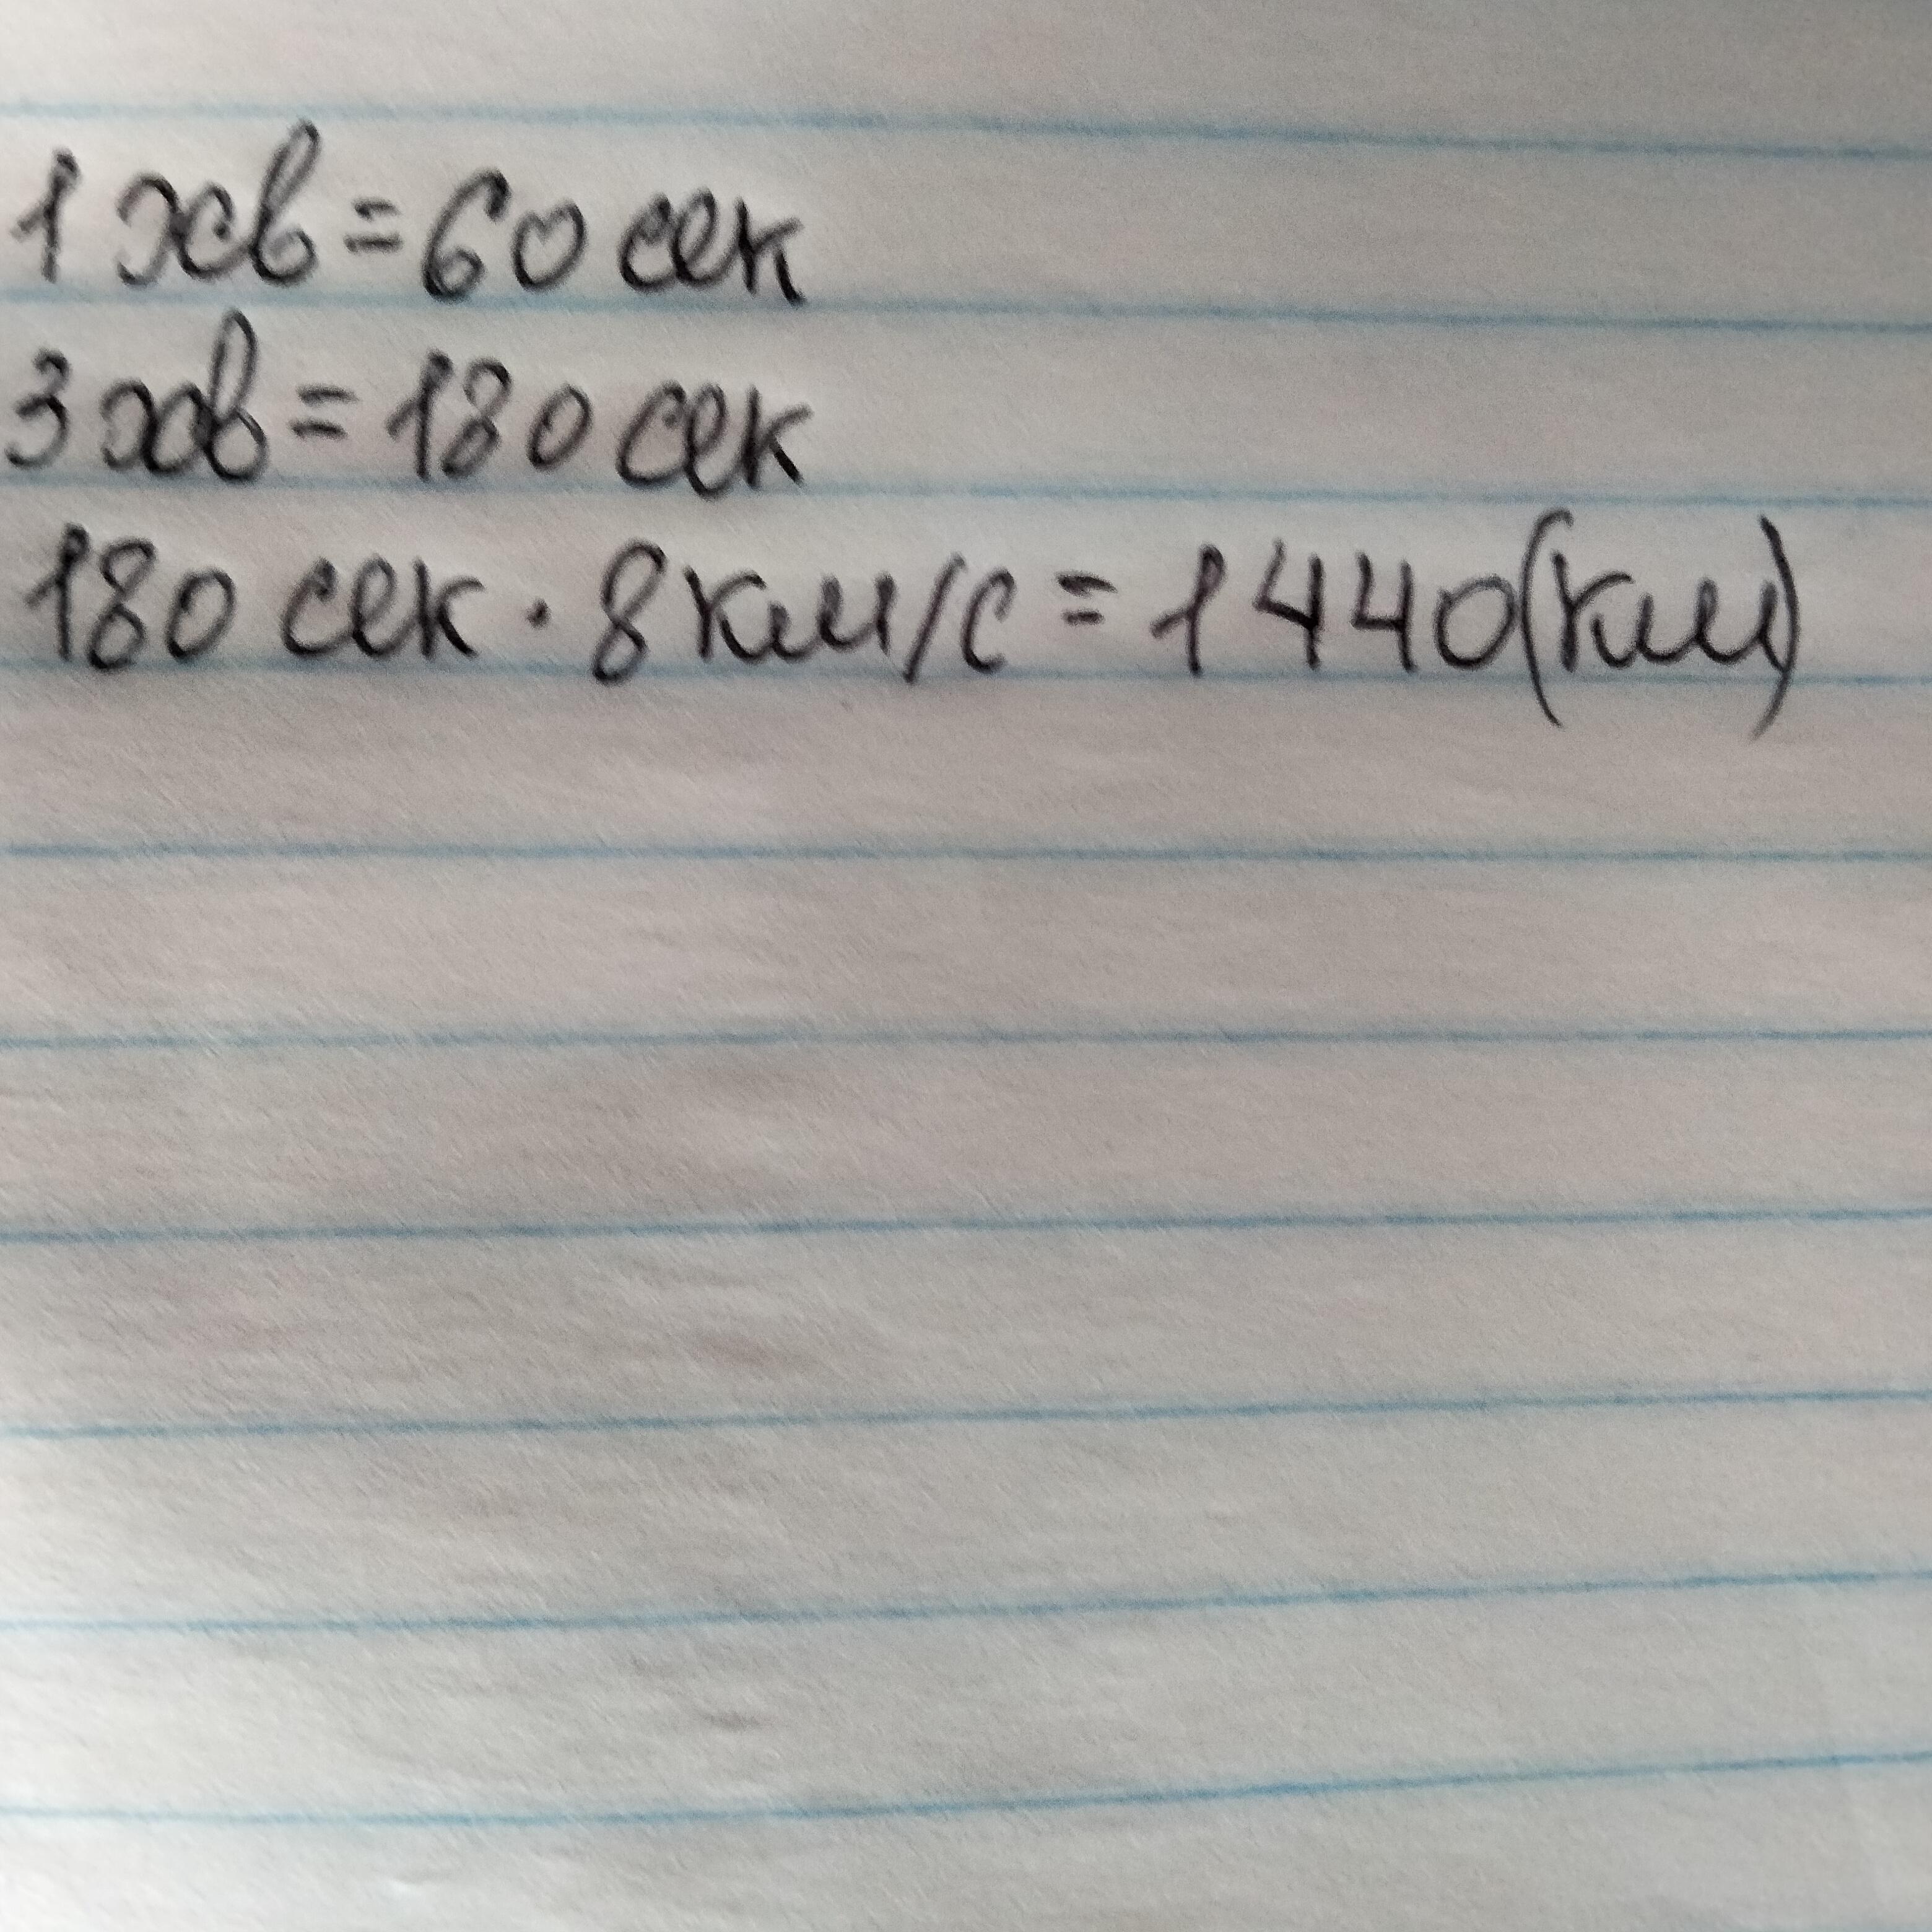 1 хв = 60 сек
3 хв = 180 сек
180 сек · 8 км/с = 1440 (км)